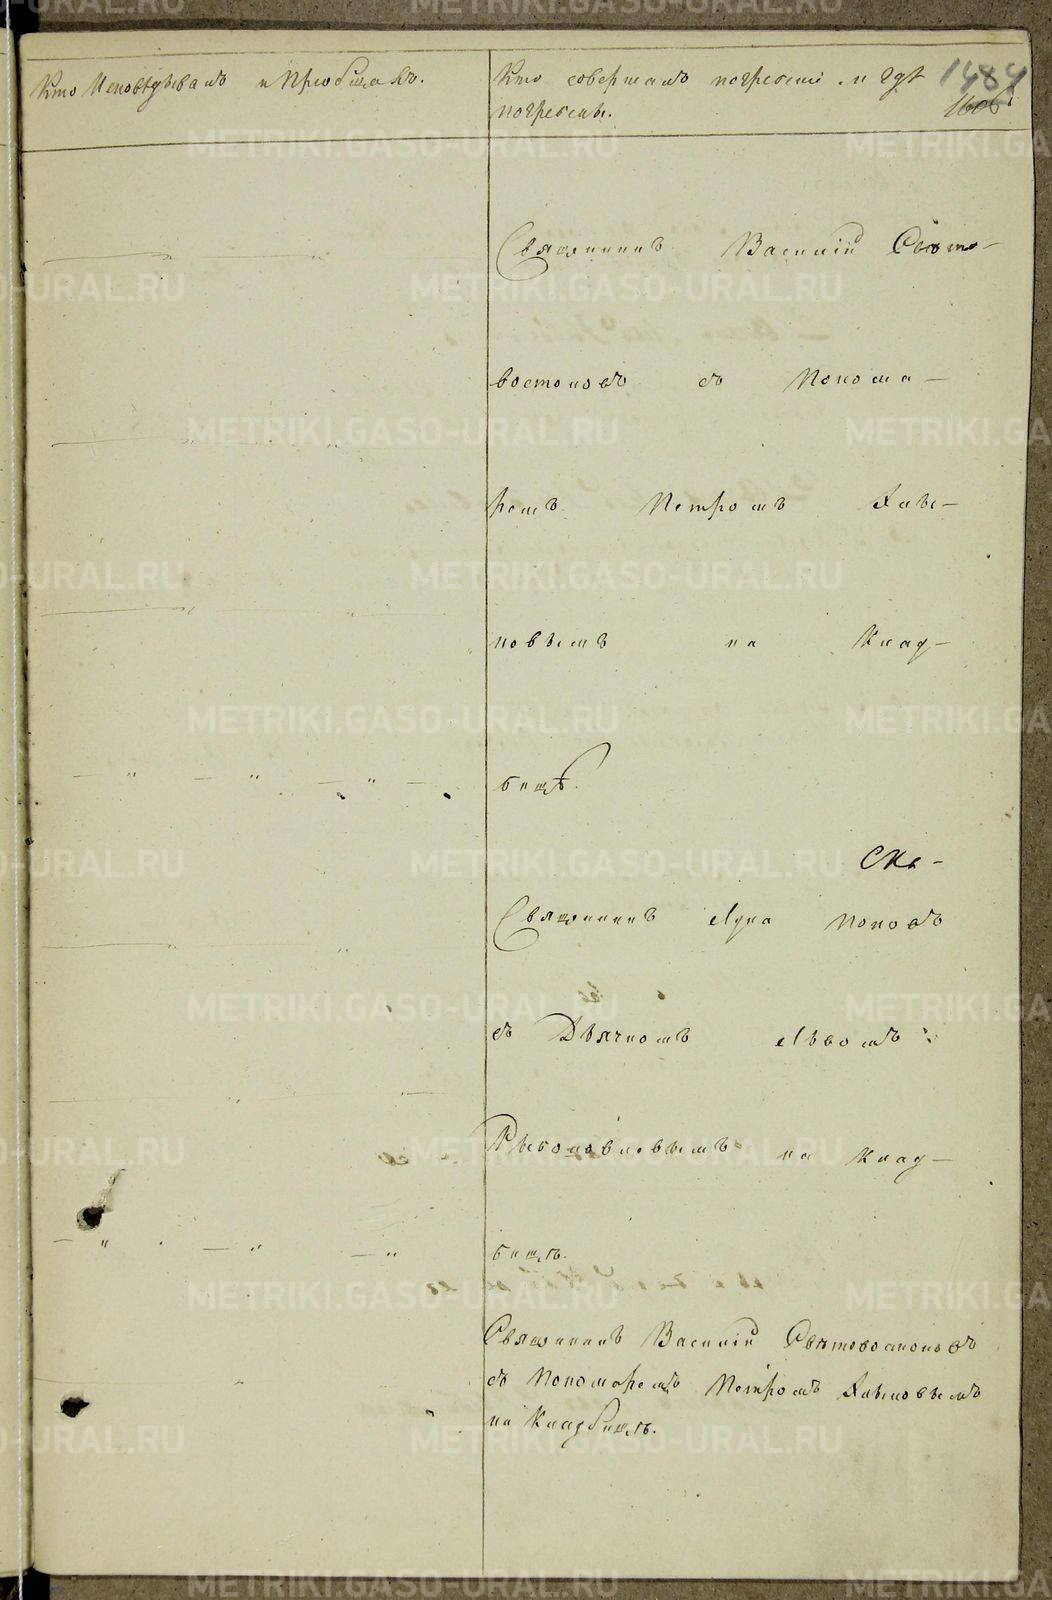 Кто Исповѣдывалъ и Пріобщалъ.
Кто совершалъ погребеніе и гдѣ
погребены.
1484
Священникъ Василій Свято-
востоковъ съ Понома-
ремъ Петромъ
новымъ на Клад-
бищѣ.
Священникъ Лука Поповъ
съ Дьячкомъ Львомъ
на Клад-
бищѣ.
Священникъ Василій Святовостоковъ
съ Пономаремъ Петромъ
на Кладбищѣ.
METRIKI.GASO-URAL.RU